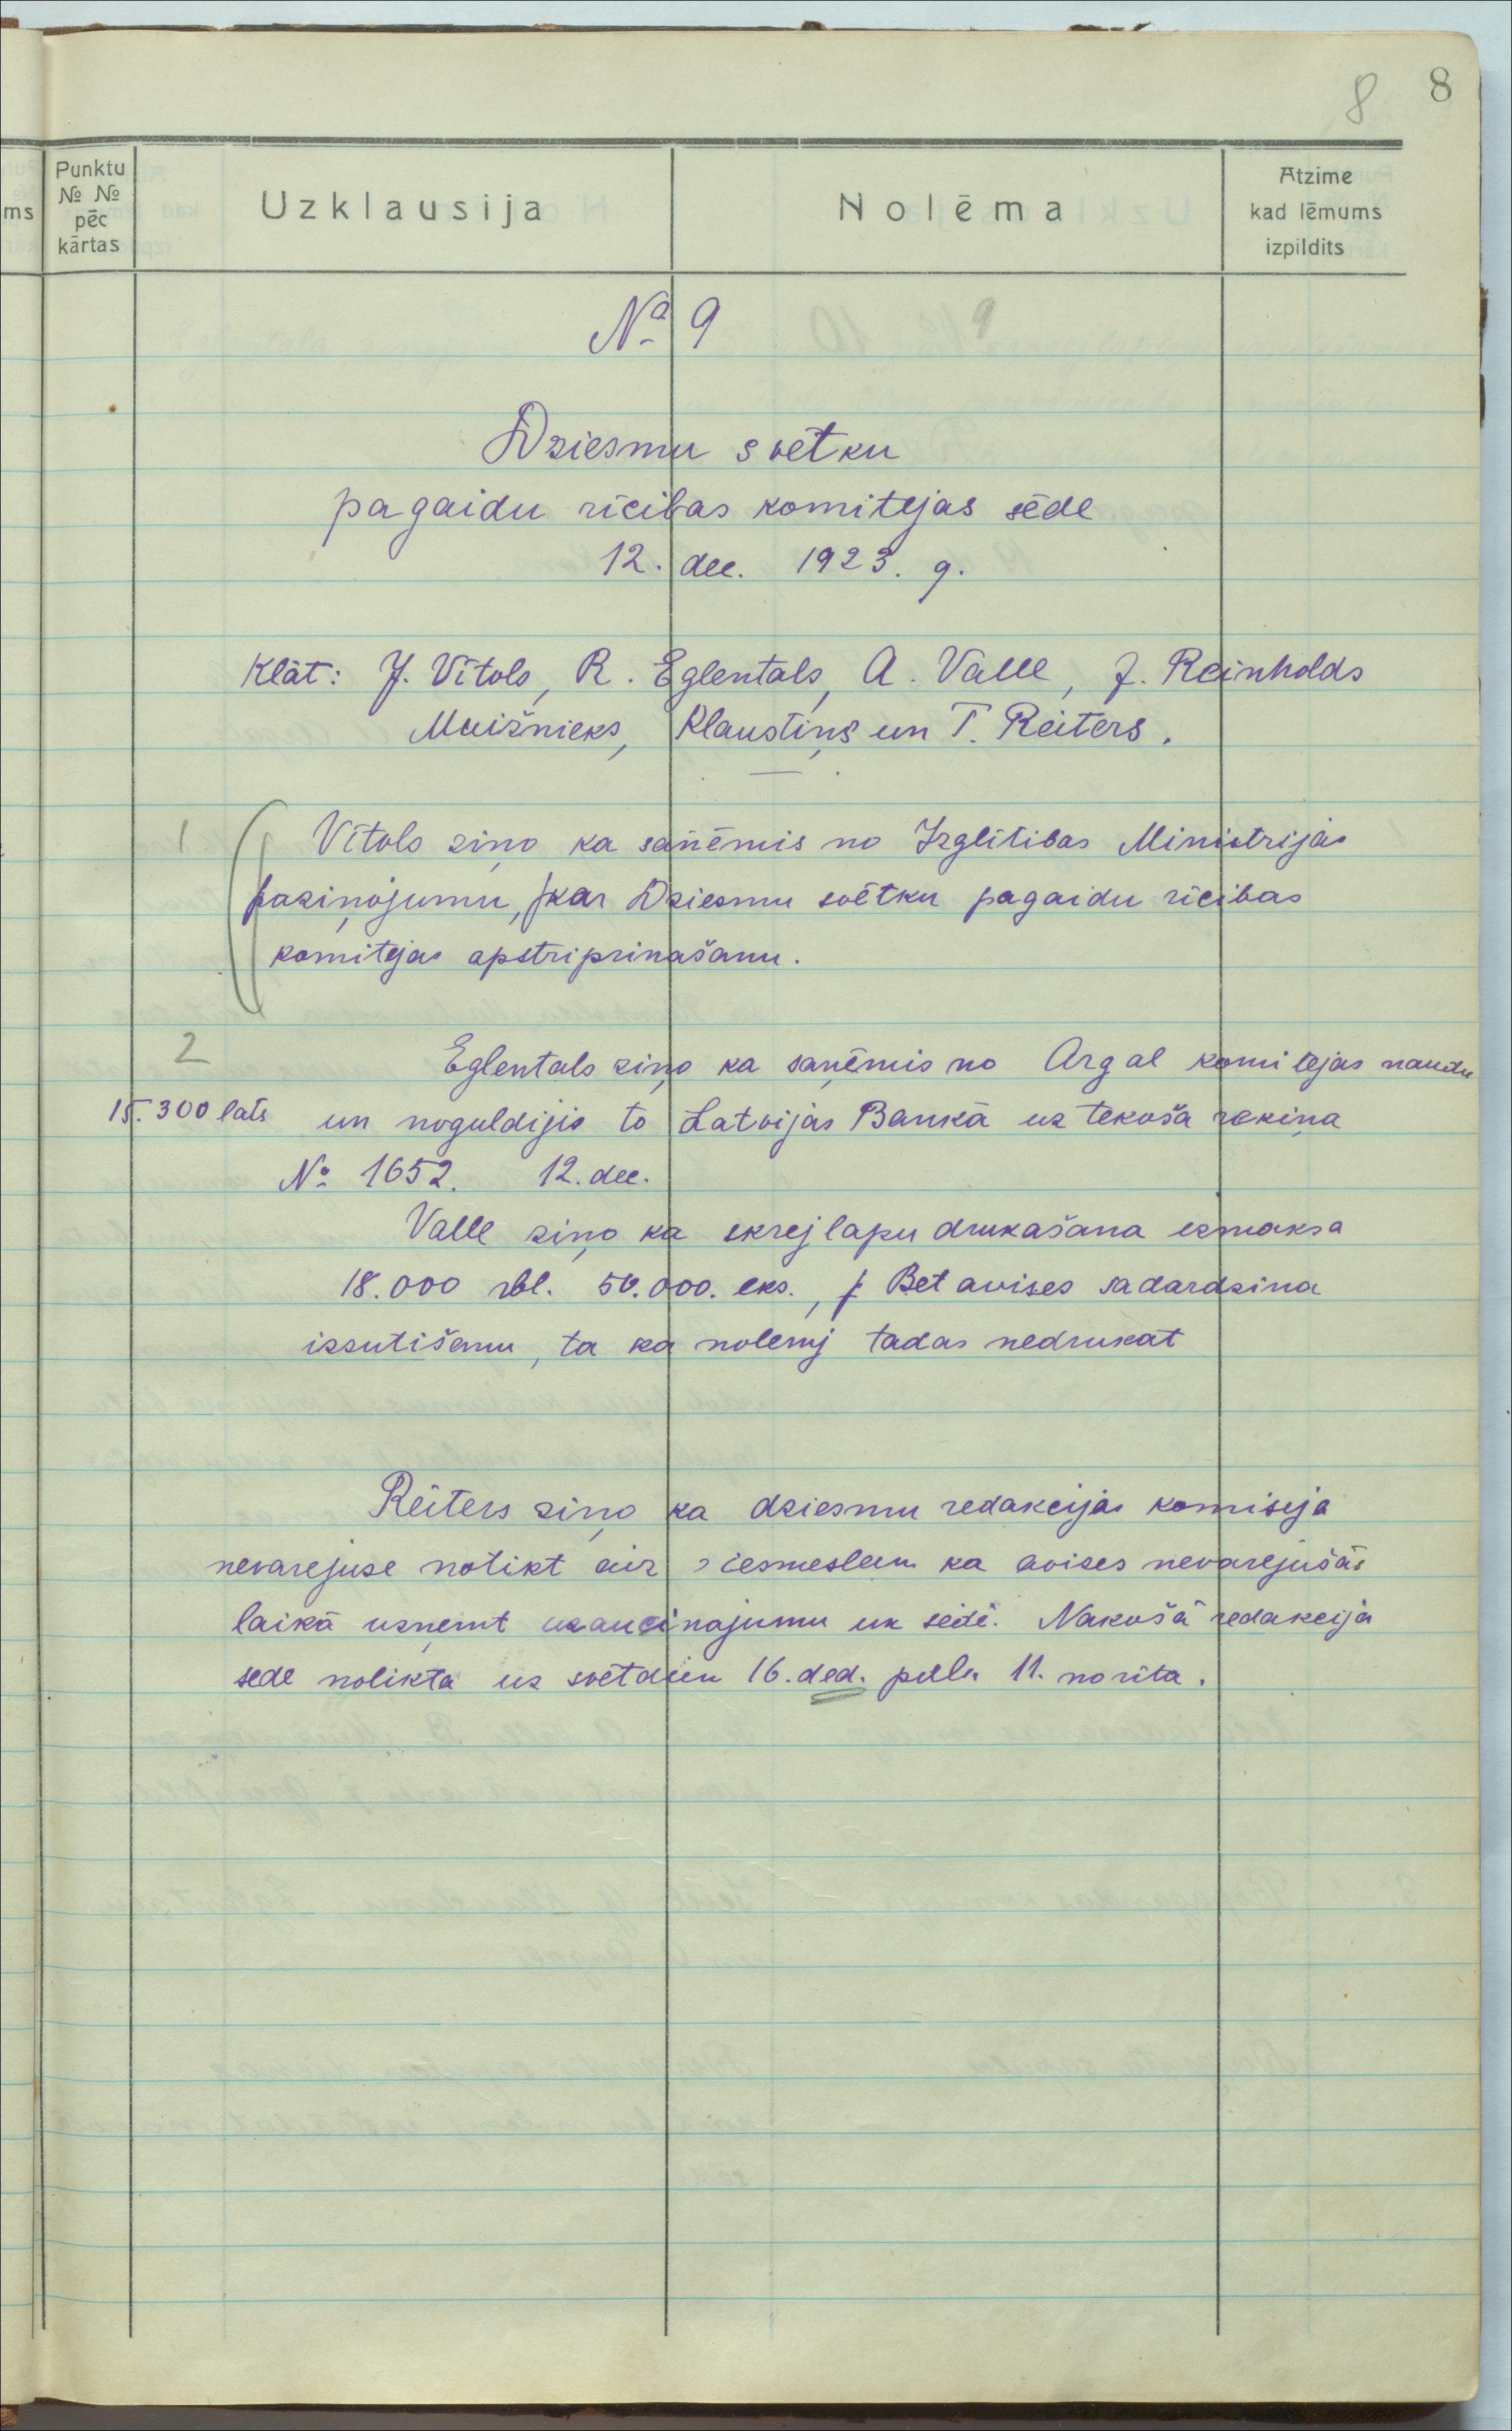 8 8
ms
Punktu
№ №
pēc
kārtas
Uzklausija
Nolēma
Atzime
kad lēmums
izpildits
№ 9
Dziesmu svētku
pagaidu rīcibas komitejas sēde
12. dec. 1923. g.
Klāt: J. Vītols, R. Eglentals, A. Valle, J. Reinholds
Muižnieks, Klaustiņs un T. Reiters.
1 Vītols ziņo ka sanēmis no Izglītibas Ministrijas
paziņojumu, par Dziesmu svētku pagaidu rīcibas
komitejas apstriprinašanu.
2 Eglentals ziņo ka saņēmis no Argal komitejas naudu
15.300 lats un noguldijis to Latvijas Bankā uz tekoša rekiņa
№ 1652. 12. dec.
Valle ziņo ka skrejlapu drukašana izmaksa
18.000 rbl. 50.000. eks., Bet avises sadardzina
izsutišanu, ta ka nolemj tadas nedrukat
Reiters ziņo ka dziesmu redakcijas komisija
nevarejuse notikt aiz iesmeslam ka avises nevarejušās
laikā uzņemt uzaucinajumu uz sēdē. Nakošā redakcija
sēde nolikta uz svētdien 16. ded. pulk. 11. no rīta.